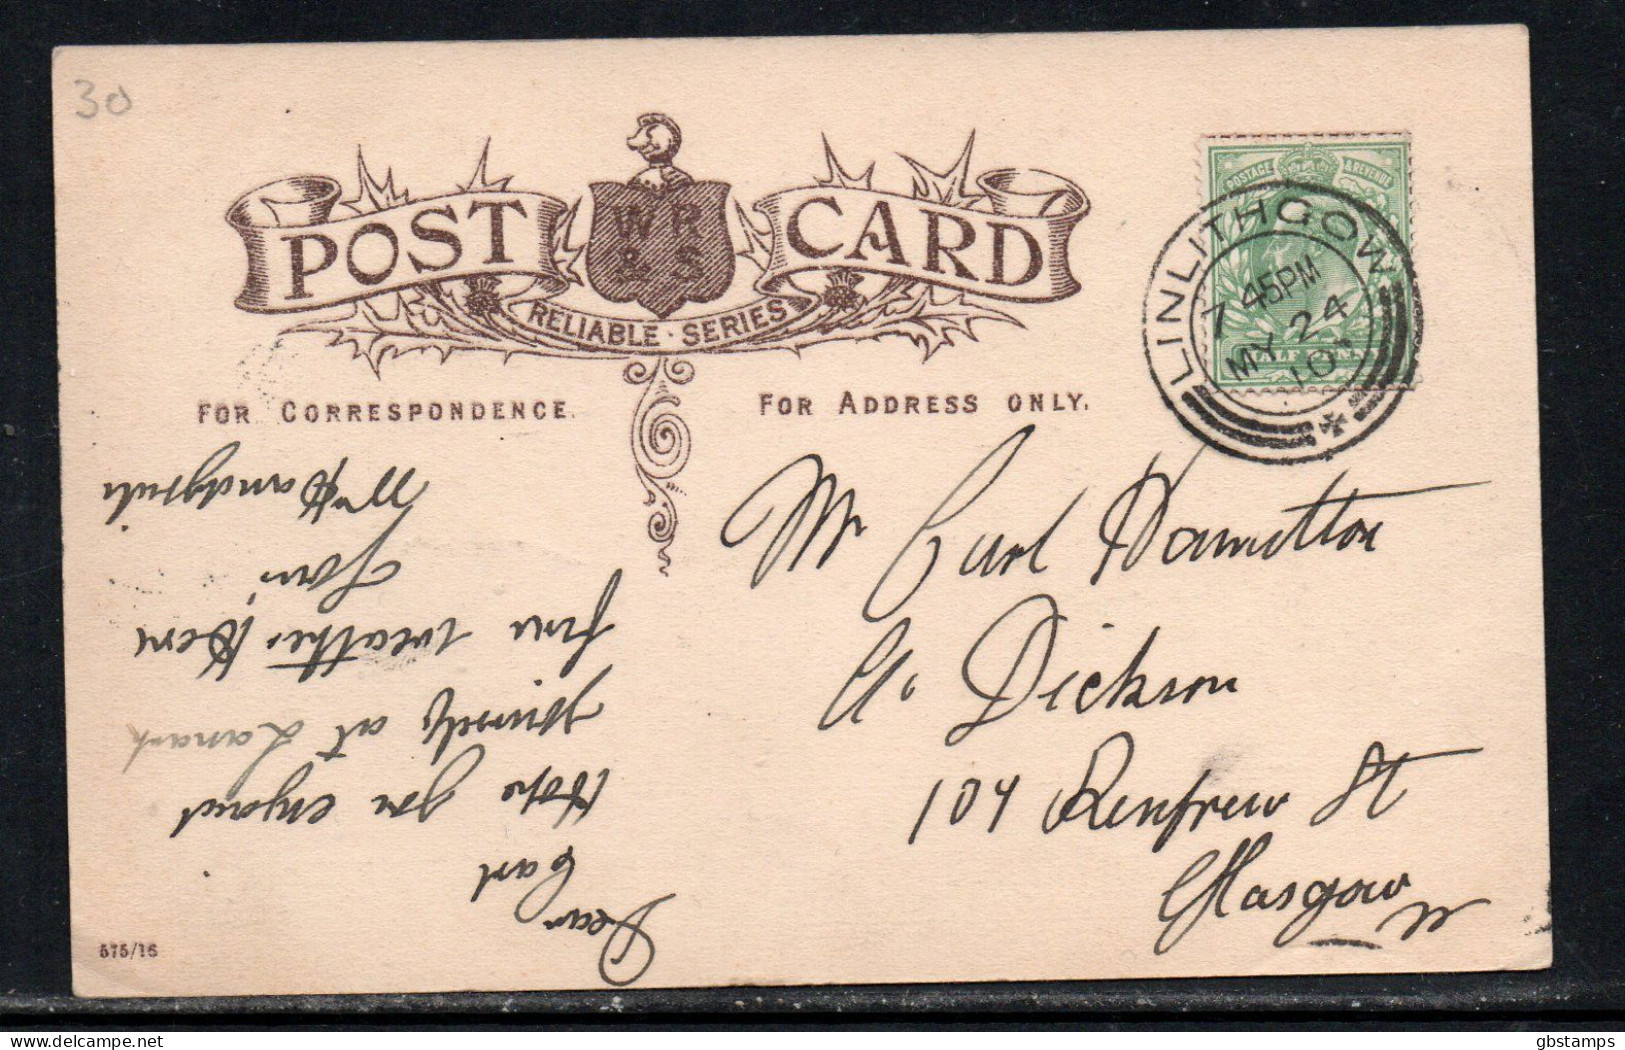 30
POST CARD
WR
& S
RELIABLE · SERIES
FOR CORRESPONDENCE.
FOR ADDRESS ONLY.
POSTAGE REVENUE
HALF PENNY
LINLITHGOW
7 45PM
MY 24
10
Mr Carl Hamilton
C/o Dickson
104 Renfrew St
Glasgow
Dear
Carl
Hope you enjoyed
yourself at Lanark
fine weather Here
from
575/16
gbstamps